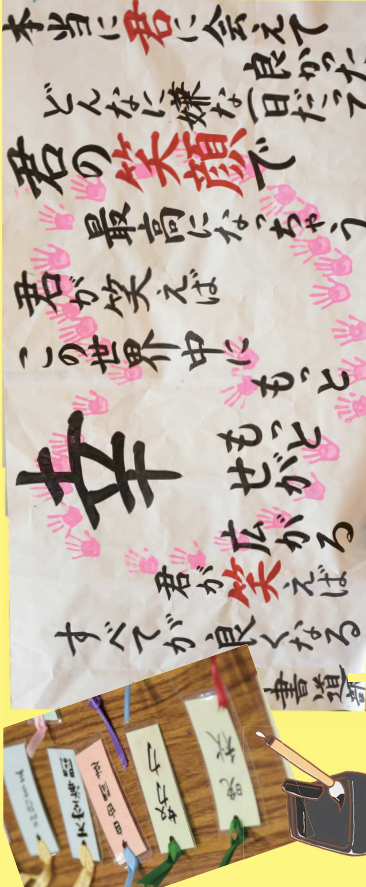 本当に君に会えて
良かった
どんなに嫌な一日だって
君の笑顔で
最高になっちゃう
君が笑えば
この世界中に
もっと
もっと
幸せが
広がる
君が笑えば
すべてが良くなる
書道部
努力